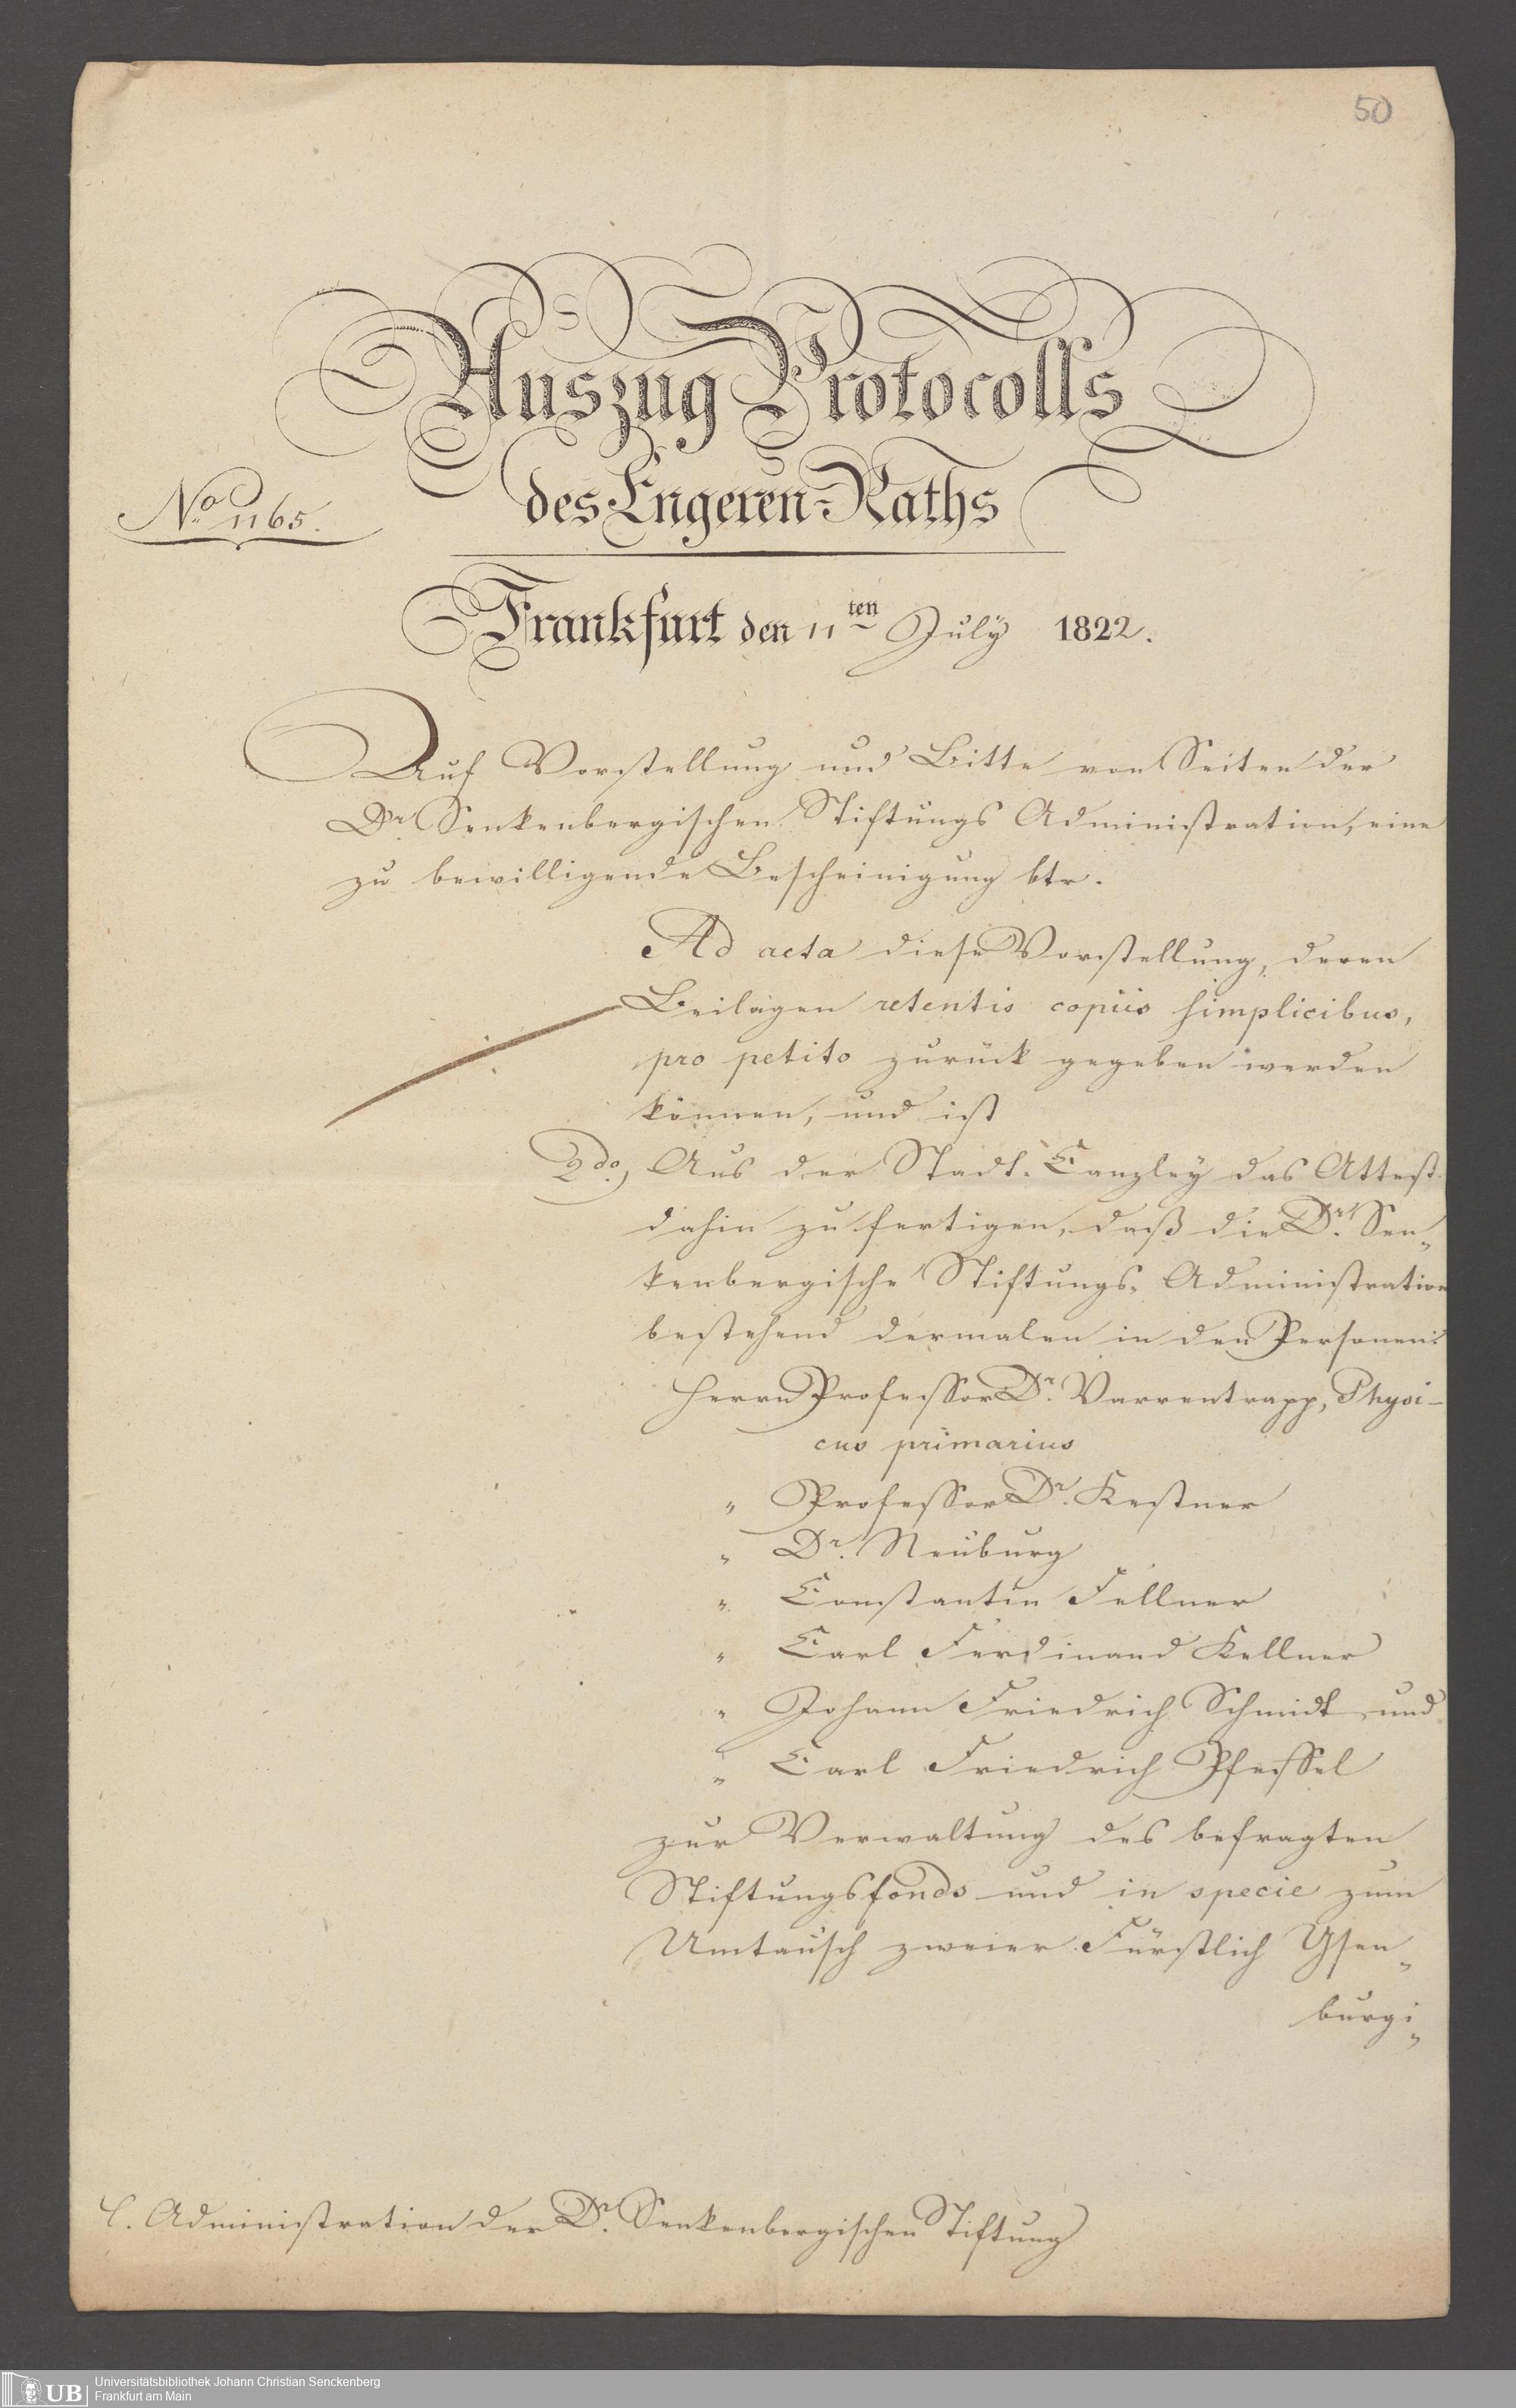 50
Auszug Protocolls
des Engeren-Raths
No 1165.
Frankfurt den 11ten July 1822.
Auf Vorstellung und Bitte von Seiten der
Dr. Senkenbergischen Stiftungs Administration, eine
zu bewilligende Bescheinigung btr.
Ad acta diese Vorstellung, deren
Beilagen retentis copiis simplicibus,
pro petito zurück gegeben werden
können, und ist
2do, Aus der Stadt-Canzley das Attest
dahin zu fertigen, daß die Dr. Sen„
kenbergische Stiftungs-Administration
bestehend dermalen in den Personen:
Herrn Professor Dr. Varrentrapp, Physi-
cus primarius
„ Professor Dr. Kestner
„ Dr. Neuburg
„ Constantin Fellner
„ Carl Ferdinand Kellner
„ Johann Friedrich Schmidt und
„ Carl Friedrich Pfeffel
zur Verwaltung des befragten
Stiftungsfonds und in specie zum
Umtausch zweier Fürstlich Ysen„
burgi„
Administration der Dr. Senkenbergischen Stiftung
UB
Universitätsbibliothek Johann Christian Senckenberg
Frankfurt am Main